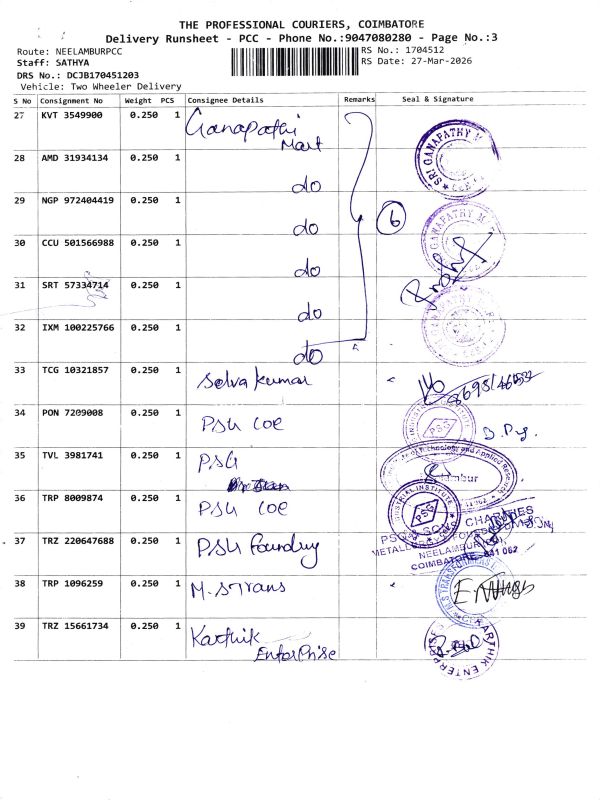 THE PROFESSIONAL COURIERS, COIMBATORE
Delivery Runsheet - PCC - Phone No.:9047080280 - Page No.:3
Route: NEELAMBURPCC
RS No.: 1704512
Staff: SATHYA
RS Date: 27-Mar-2026
DRS No.: DCJB170451203
Vehicle: Two Wheeler Delivery
S No Consignment No Weight PCS Consignee Details Remarks Seal & Signature
27 KVT 3549900 0.250 1 Ganapathi
Mart
SRI GANAPATHY
28 AMD 31934134 0.250 1
do
29 NGP 972404419 0.250 1
do
6
GANAPATHY
30 CCU 501566988 0.250 1
do
31 SRT 57334714 0.250 1
do
32 IXM 100225766 0.250 1
do
33 TCG 10321857 0.250 1 Selva kumar
34 PON 7209008 0.250 1 PSG COE
PSG
35 TVL 3981741 0.250 1 PSG
36 TRP 8009874 0.250 1 PSG COE
INDUSTRIAL INSTITUTE
PSG
37 TRZ 220647688 0.250 1 PSG Foundry
PSG & SONS CHARITIES
METALLURGY FOUNDRY DIVISION
NEELAMBUR
COIMBATORE - 641 062
38 TRP 1096259 0.250 1 M.S Trans
39 TRZ 15661734 0.250 1 Karthik
EnterPrise
KARTHIK ENTERPRISE